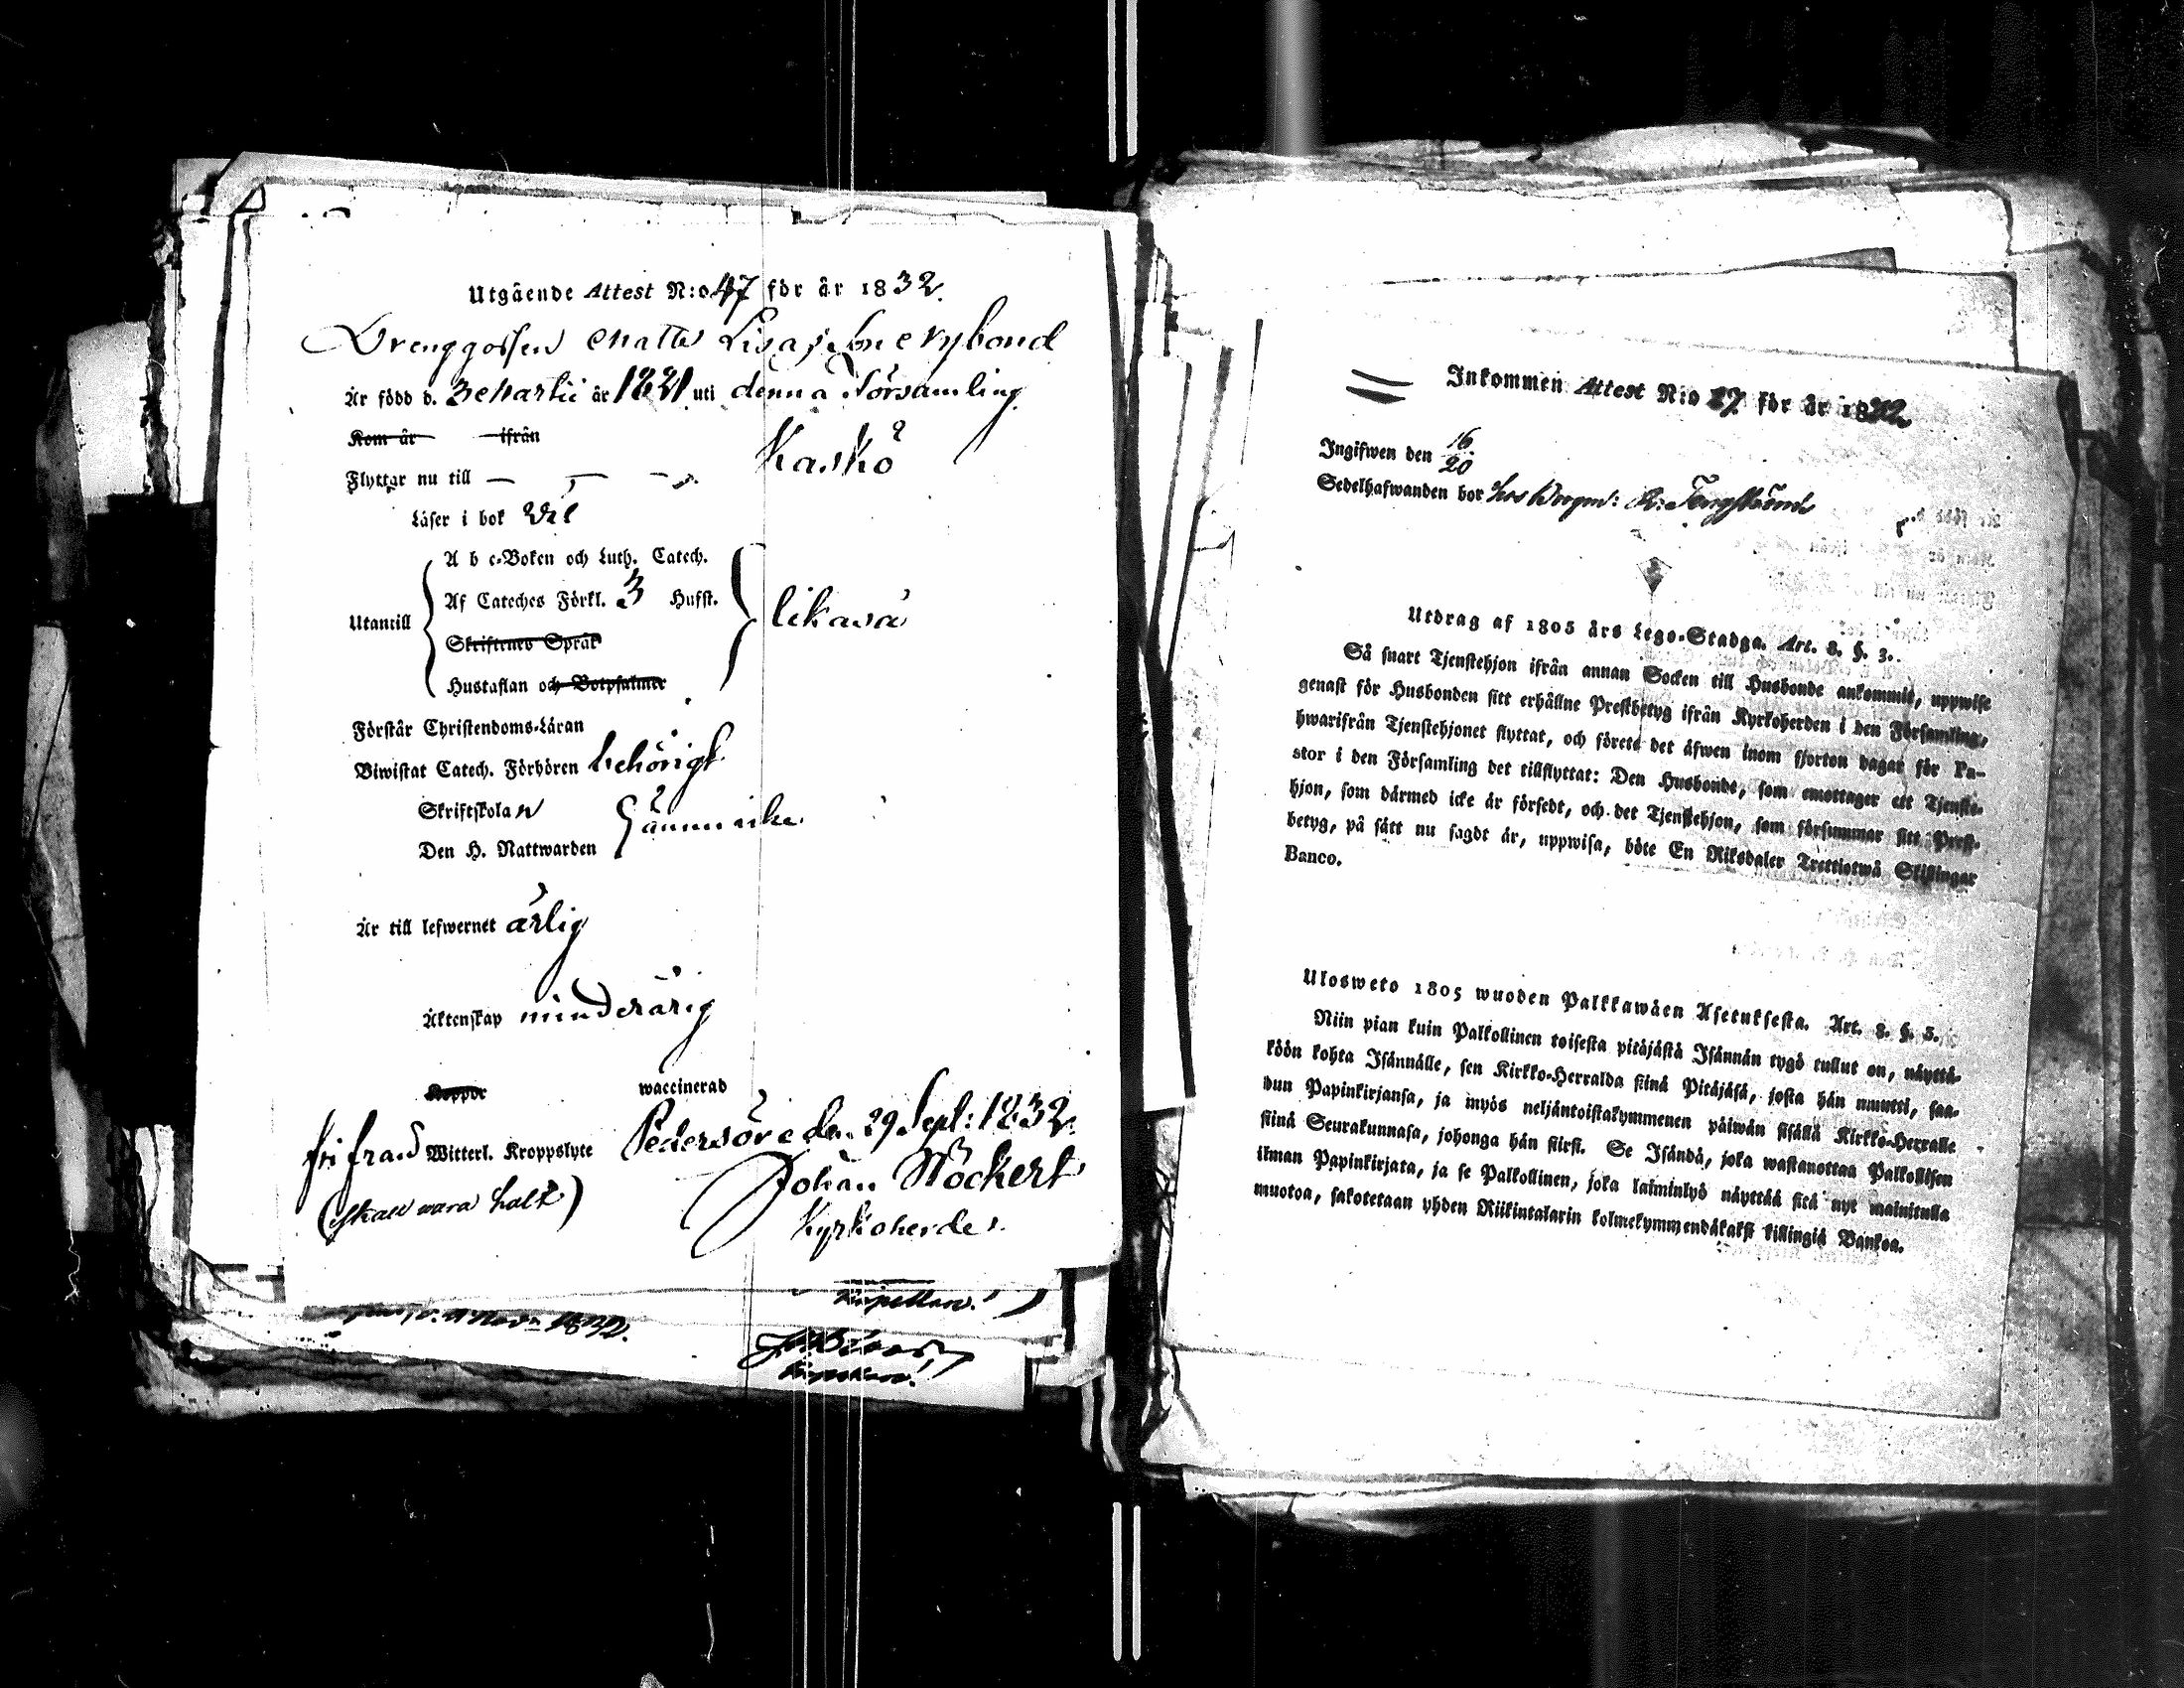 Utgående Attest N:o 47 för år 1832.
Drenggossen Matts Lisasson Nybond
Är född d. 3 Martii år 1821 uti denna Församling
Kom år ifrån
Flyttar nu till — — — Kaskö
Läser i bok väl
A b c-Boken och Luth. Catech.
Af Cateches Förkl. 3 Hufst.
Utantill likaså
Skriftenes Språk
Hustaflan och Botpsalmer
Förstår Christendoms-Läran
Biwistat Catech. Förhören behörigt
Skriftskolan
Den H. Nattwarden
Är till lefwernet ärlig
Äktenskap minderårig
Koppor waccinerad
fri från Witterl. Kroppslyte Pedersöre den 29 Sept: 1832.
(skall wara halt) Johan Stöckert
Kyrkoherde.
Kapellan.
1832.
Inkommen Attest N:o 27 för år 1832
Ingifwen den 16/20
Sedelhafwanden bor hos
Utdrag af 1805 års Lego-Stadga. Art. 8. §. 3.
Så snart Tjenstehjon ifrån annan Socken till Husbonde ankommit, uppwise
genast för Husbonden sitt erhållne Prestbetyg ifrån Kyrkoherden i den Församling,
hwarifrån Tjenstehjonet flyttat, och förete det äfwen inom fjorton dagar för Pa-
stor i den Församling det tillflyttat: Den Husbonde, som emottager ett Tjenste-
hjon, som därmed icke är försedt, och det Tjenstehjon, som försummar sitt Prest-
betyg, på sätt nu sagdt är, uppwisa, böte En Riksdaler Trettiotwå Skillingar
Banco.
Ulosweto 1805 wuoden Palkkawäen Asetuksesta. Art. 8. §. 3.
Niin pian kuin Palkollinen toisesta pitäjästä Isännän tygö tullut on, näyttä-
köön kohta Isännälle, sen Kirkko-Herralda siinä Pitäjäsä, josta hän muutti, saa-
dun Papinkirjansa, ja myös neljäntoistakymmenen päiwän sisällä Kirkko-Herralle
siinä Seurakunnasa, johonga hän siirsi. Se Isändä, joka wastanottaa Palkollisen
ilman Papinkirjata, ja se Palkollinen, joka laiminlyö näyttää sitä nyt mainitulla
muotoa, sakotetaan yhden Riikintalarin kolmekymmendäkaksi killingiä Bankoa.